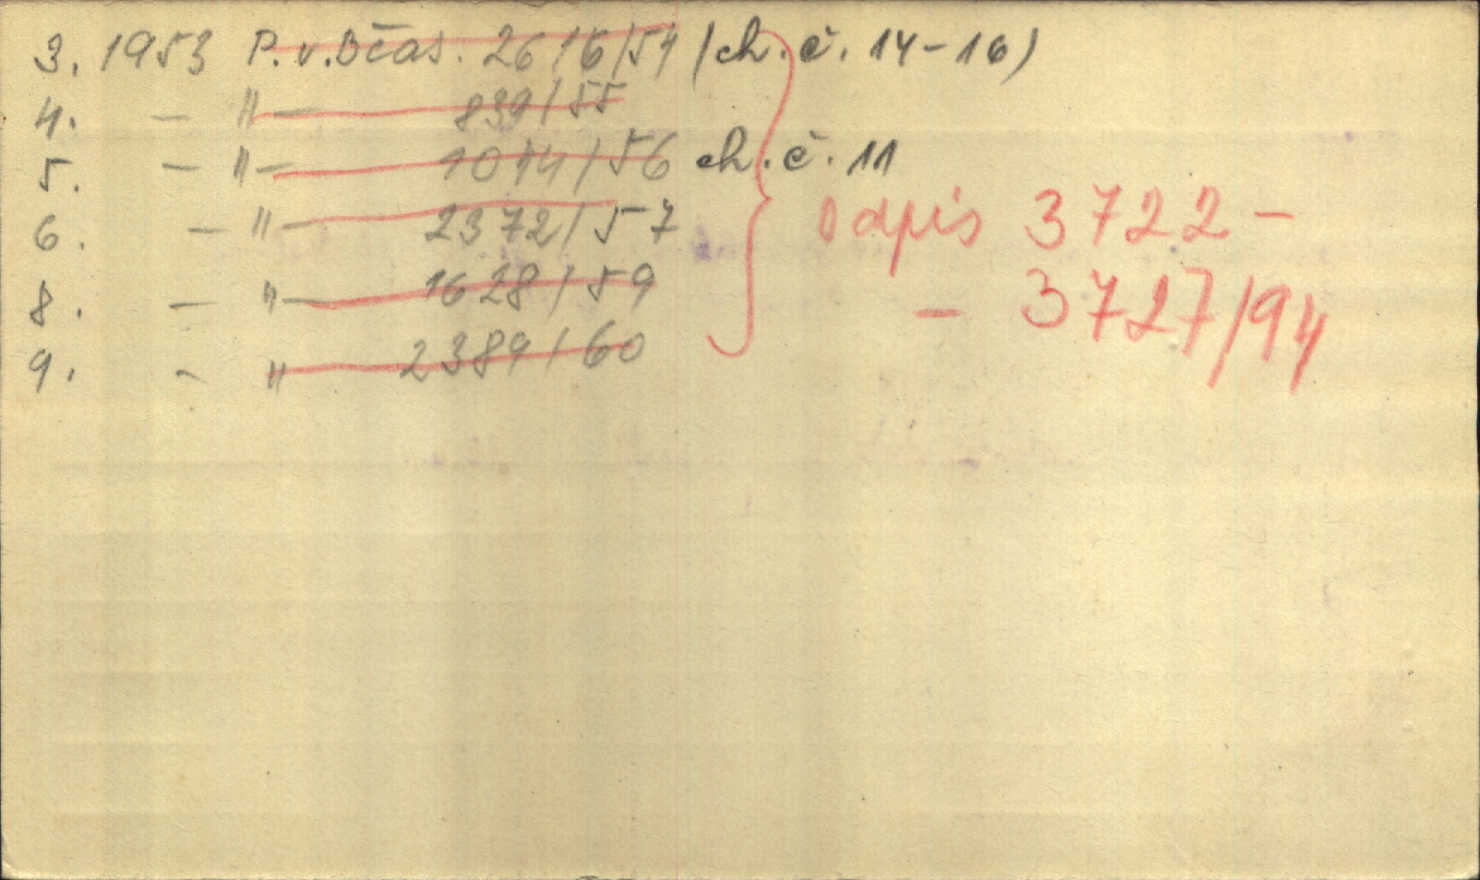 3. 1953 P.v.Bčas. 2616/54 (ch.č. 14-16)
4. - " - 839/55
5. - " - 1014/56 ch.č. 11
6. - " - 2372/57
8. - " - 1628/59
9. - " 2389/60
odpis 3722 -
- 3727/94